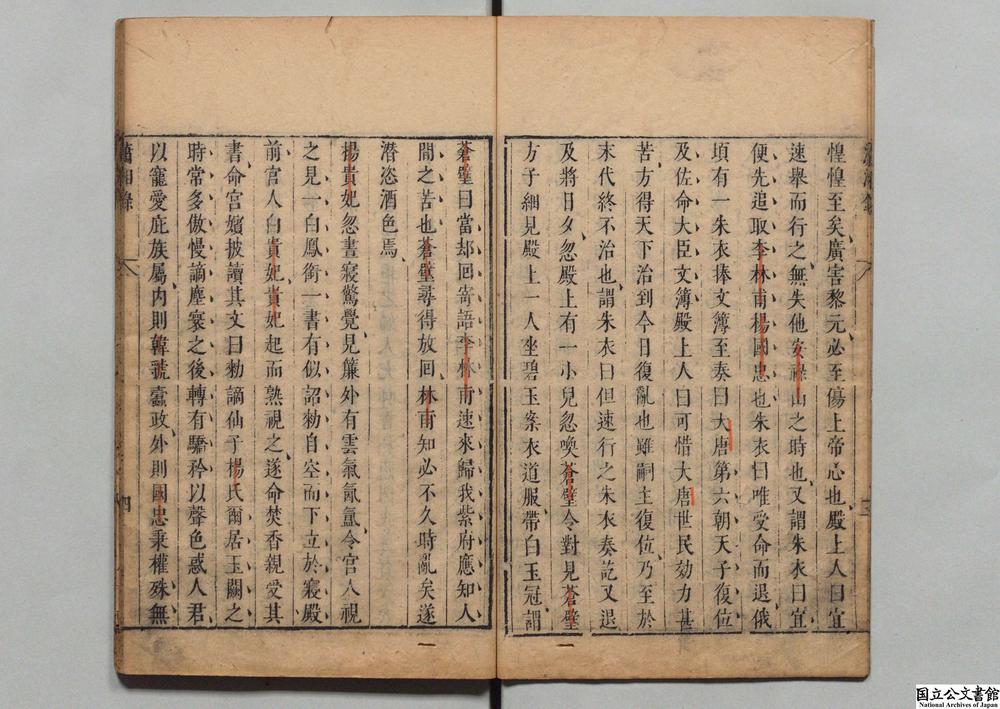 惶惶至矣廣害黎元必至傷上帝心也殿上人曰宜
速舉而行之無失他安祿山之時也又謂朱衣曰宜
便先追取李林甫楊國忠也朱衣曰唯受命而退俄
頃有一朱衣捧文簿至奏曰大唐第六朝天子復位
及佐命大臣文簿殿上人曰可惜大唐世民効力甚
苦方得天下治到今日復亂也雖嗣主復位乃至於
末代終不治也謂朱衣曰但速行之朱衣奏訖又退
及將日夕忽殿上有一小兒忽喚蒼璧令對見蒼璧
方子細見殿上一人坐碧玉案衣道服帶白玉冠謂
蒼璧曰當却回寄語李林甫速來歸我紫府應知人
間之苦也蒼璧尋得放回林甫知必不久時亂矣遂
潛恣酒色焉
楊貴妃忽晝寢驚覺見簾外有雲氣氤氳令宮人視
之見一白鳳銜一書有似詔勑自空而下立於寢殿
前宮人白貴妃貴妃起而熟視之遂命焚香親受其
書命宮嬪披讀其文曰勑謫仙子楊氏爾居玉闕之
時常多傲慢謫塵寰之後轉有驕矜以聲色惑人君
以寵愛庇族屬內則韓虢蠹政外則國忠秉權殊無
瀟湘錄
四
国立公文書館
National Archives of Japan